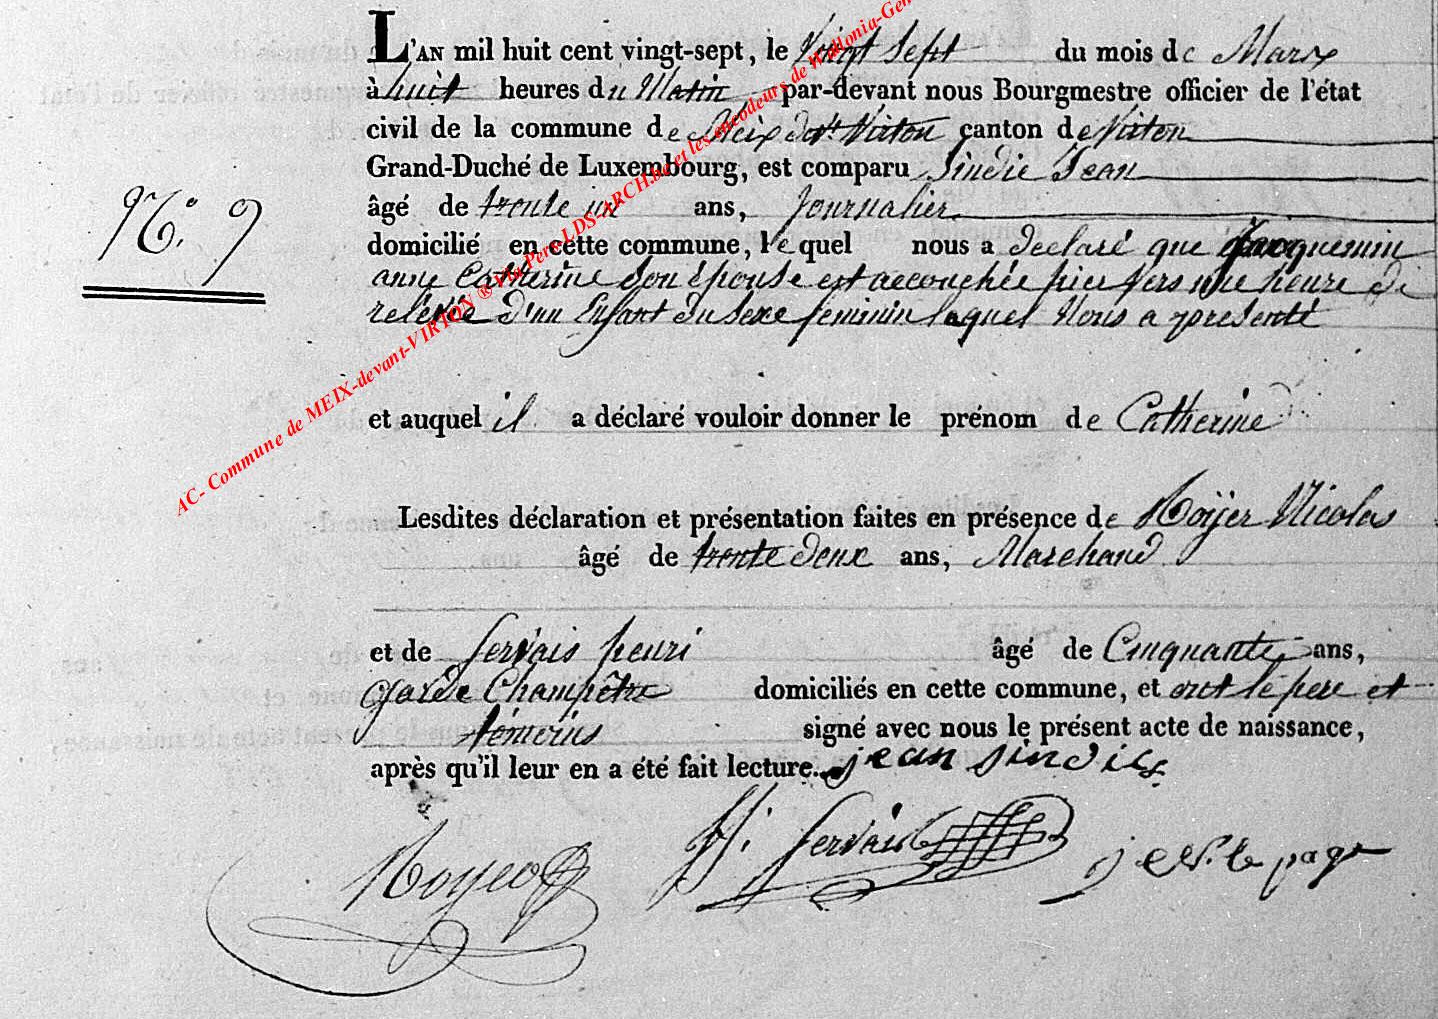 L'AN mil huit cent vingt-sept, le vingt sept du mois de Mars
à huit heures du Matin par-devant nous Bourgmestre officier de l'état
civil de la commune de Meix devt Virton canton de Virton
Grand-Duché de Luxembourg, est comparu Sindic Jean
âgé de trente un ans, Journalier
N.° 9
domicilié en cette commune, lequel nous a declaré que Jacquemin
anne Catherine Son épouse est accouchée hier vers une heure de
relevée d'un Enfant du sexe feminin laquel Nous a presenté
et auquel il a déclaré vouloir donner le prénom de Catherine
Lesdites déclaration et présentation faites en présence de Roÿer Nicolas
âgé de trente deux ans, Marchand
et de Servais henri âgé de Cinquante ans,
garde Champêtre domiciliés en cette commune, et ont le pere et
témoins signé avec nous le présent acte de naissance,
après qu'il leur en a été fait lecture. jean sindic
Royer H. Servais lepage
AC- Commune de MEIX-devant-VIRTON ® Via Pero LDS-ARCH.be et les encodeurs de Wallonia-Gen